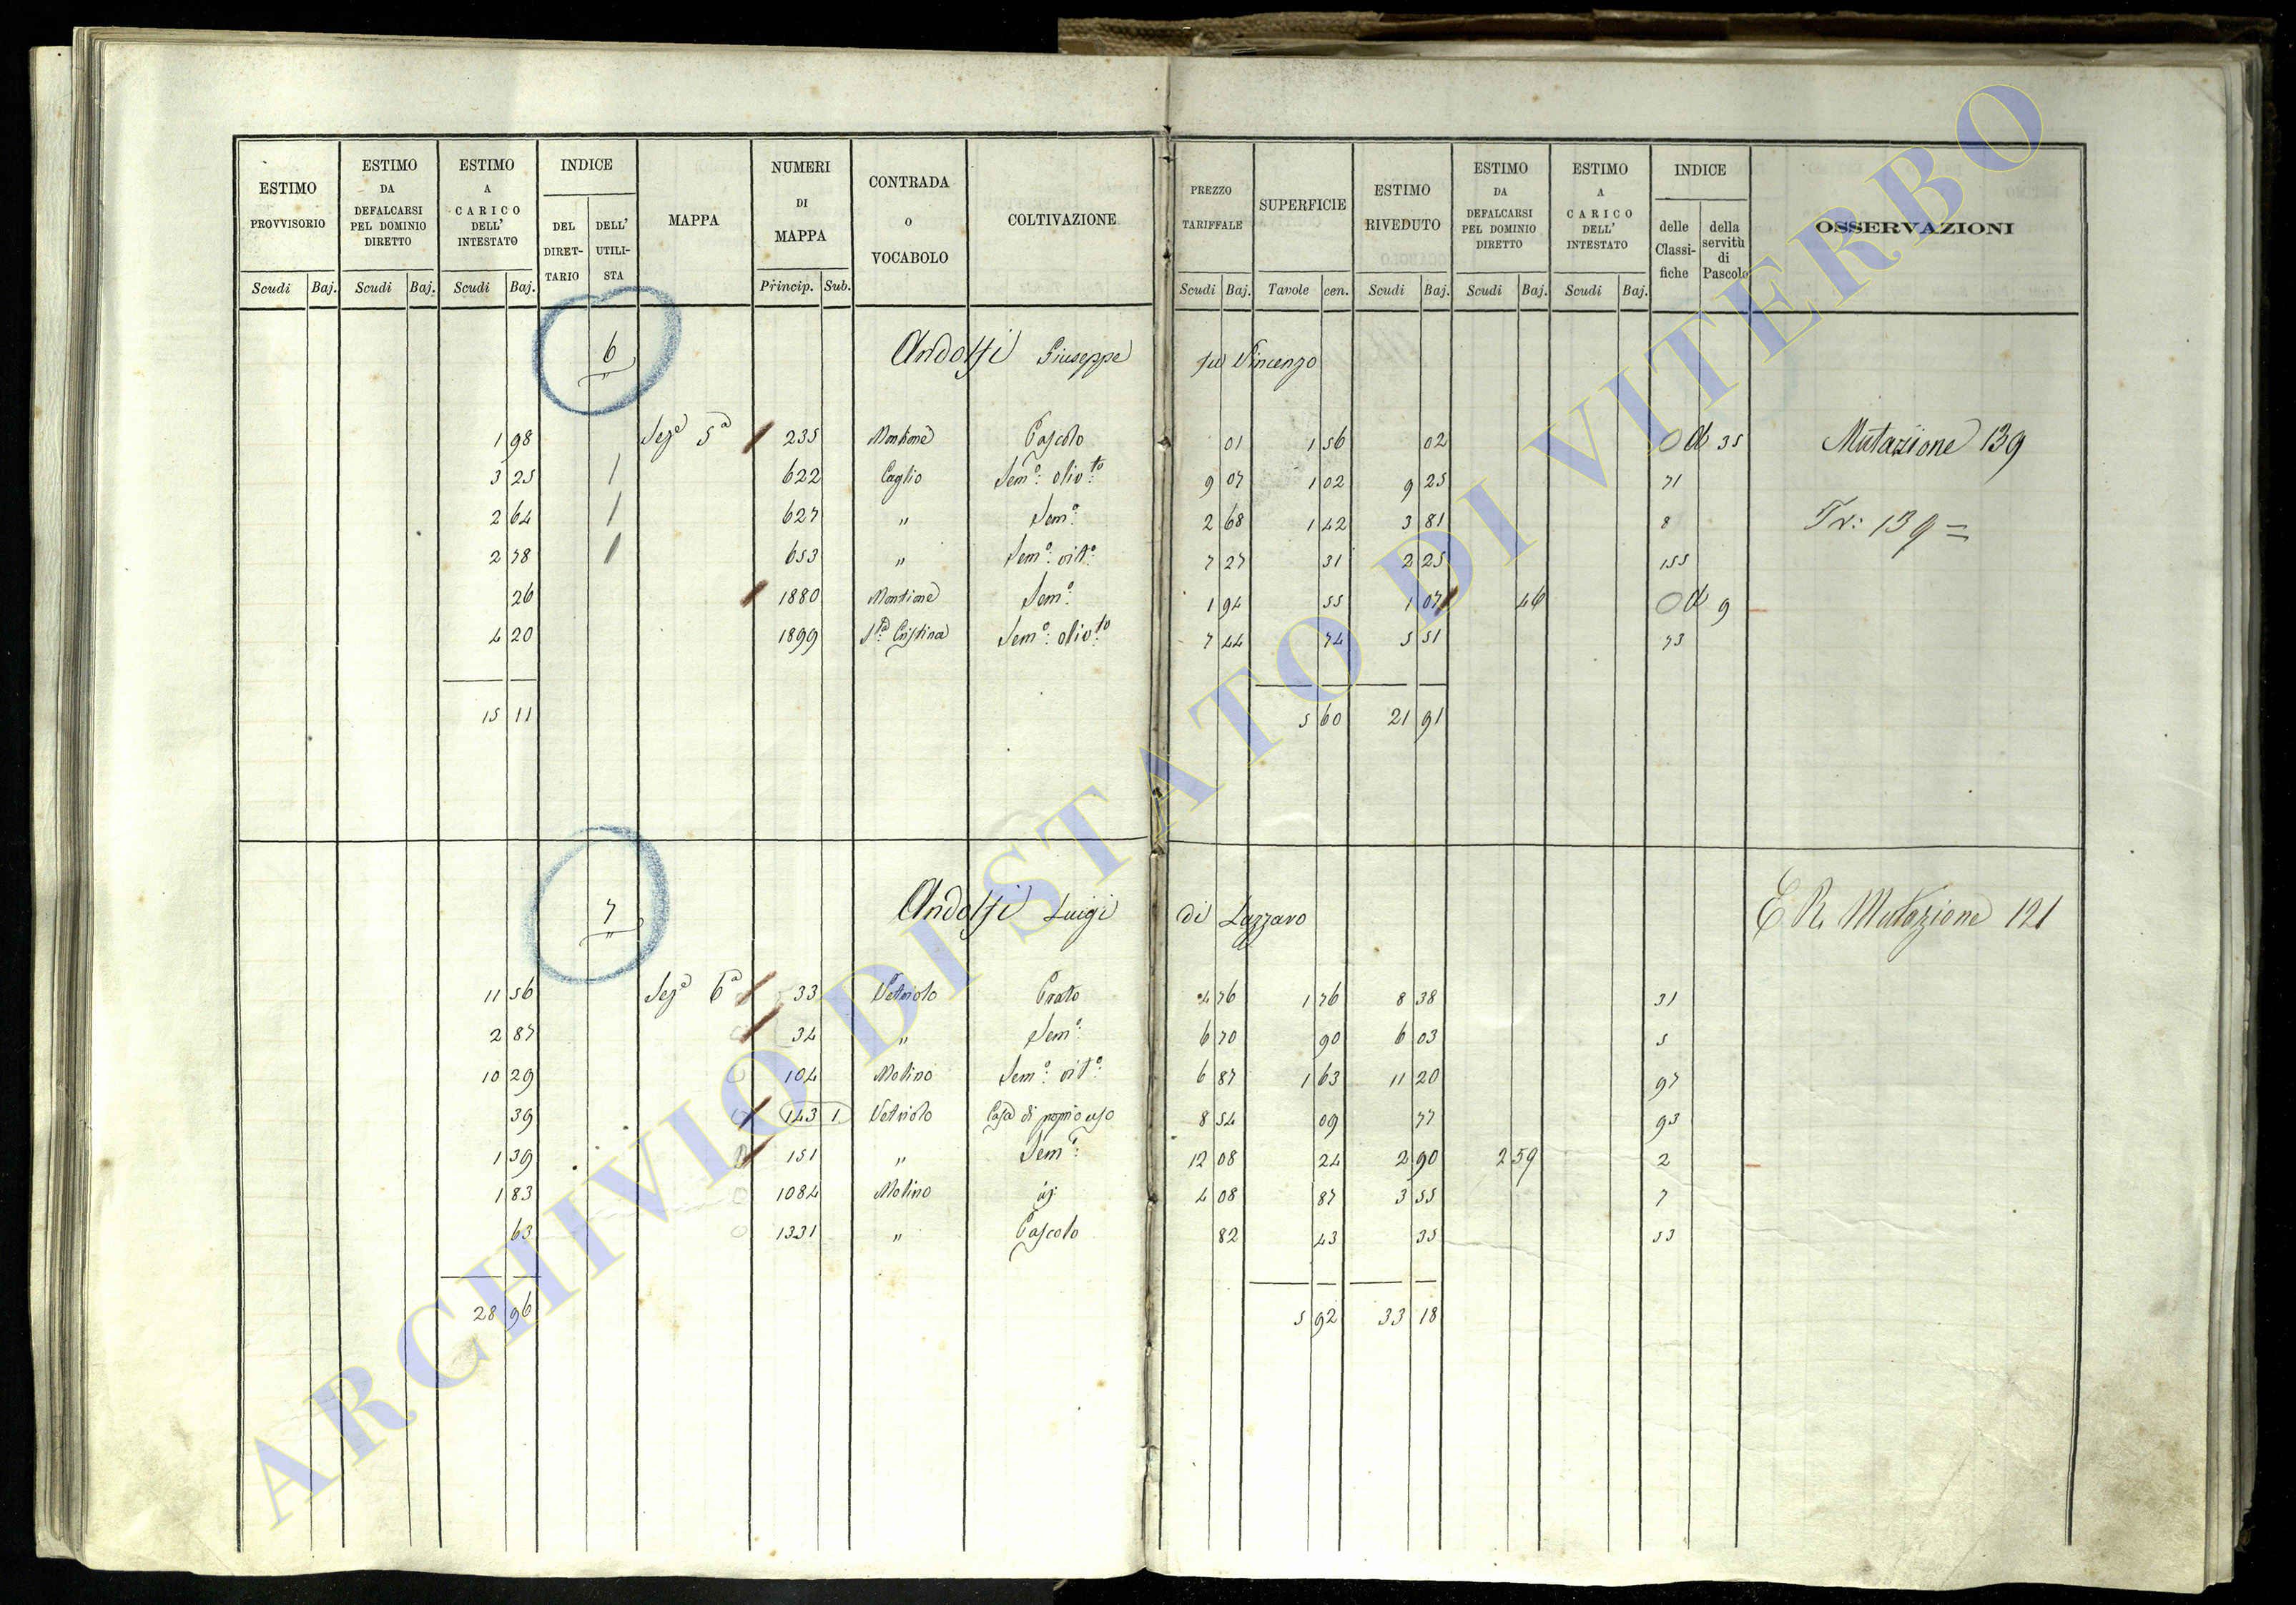 ESTIMO PROVVISORIO Scudi Baj.
ESTIMO DA DEFALCARSI PEL DOMINIO DIRETTO Scudi Baj.
ESTIMO A CARICO DELL' INTESTATO Scudi Baj.
INDICE DEL DIRET-TARIO DELL' UTILI-STA
MAPPA
NUMERI DI MAPPA Princip. Sub.
CONTRADA o VOCABOLO
COLTIVAZIONE
PREZZO TARIFFALE Scudi Baj.
SUPERFICIE Tavole cen.
ESTIMO RIVEDUTO Scudi Baj.
ESTIMO DA DEFALCARSI PEL DOMINIO DIRETTO Scudi Baj.
ESTIMO A CARICO DELL' INTESTATO Scudi Baj.
INDICE delle Classi-fiche della servitù di Pascolo
OSSERVAZIONI
6 Andolfi Giuseppe fu Vincenzo
1 98 Seza 5a 235 Montione Pascolo 01 1 56 02 35 Mutazione 139
3 25 1 622 Caglio Semo: olivto: 9 07 1 02 9 25 71
2 64 1 627 " Semo: 2 68 1 42 3 81 8 Tr: 139 =
2 78 1 653 " Semo: vito: 7 27 31 2 25 155
26 1880 Montione Semo: 1 94 55 1 07 46 9
4 20 1899 Sta: Cristina Semo: olivto: 7 44 74 5 51 73
15 11 5 60 21 91
7 Andolfi Luigi di Lazzaro E R. Mutazione 121
11 56 Seza 6a 33 Vetriolo Prato 4 76 1 76 8 38 31
2 87 34 " Semo: 6 70 90 6 03 5
10 29 104 Molino Semo: vito: 6 87 1 63 11 20 97
39 143 1 Vetriolo Casa di proprio uso 8 54 09 77 93
1 39 151 " Semo: 12 08 24 2 90 2 59 2
1 83 1084 Molino 4 08 87 3 55 7
63 1331 " Pascolo 82 43 35 53
28 96 5 92 33 18
ARCHIVIO DI STATO DI VITERBO